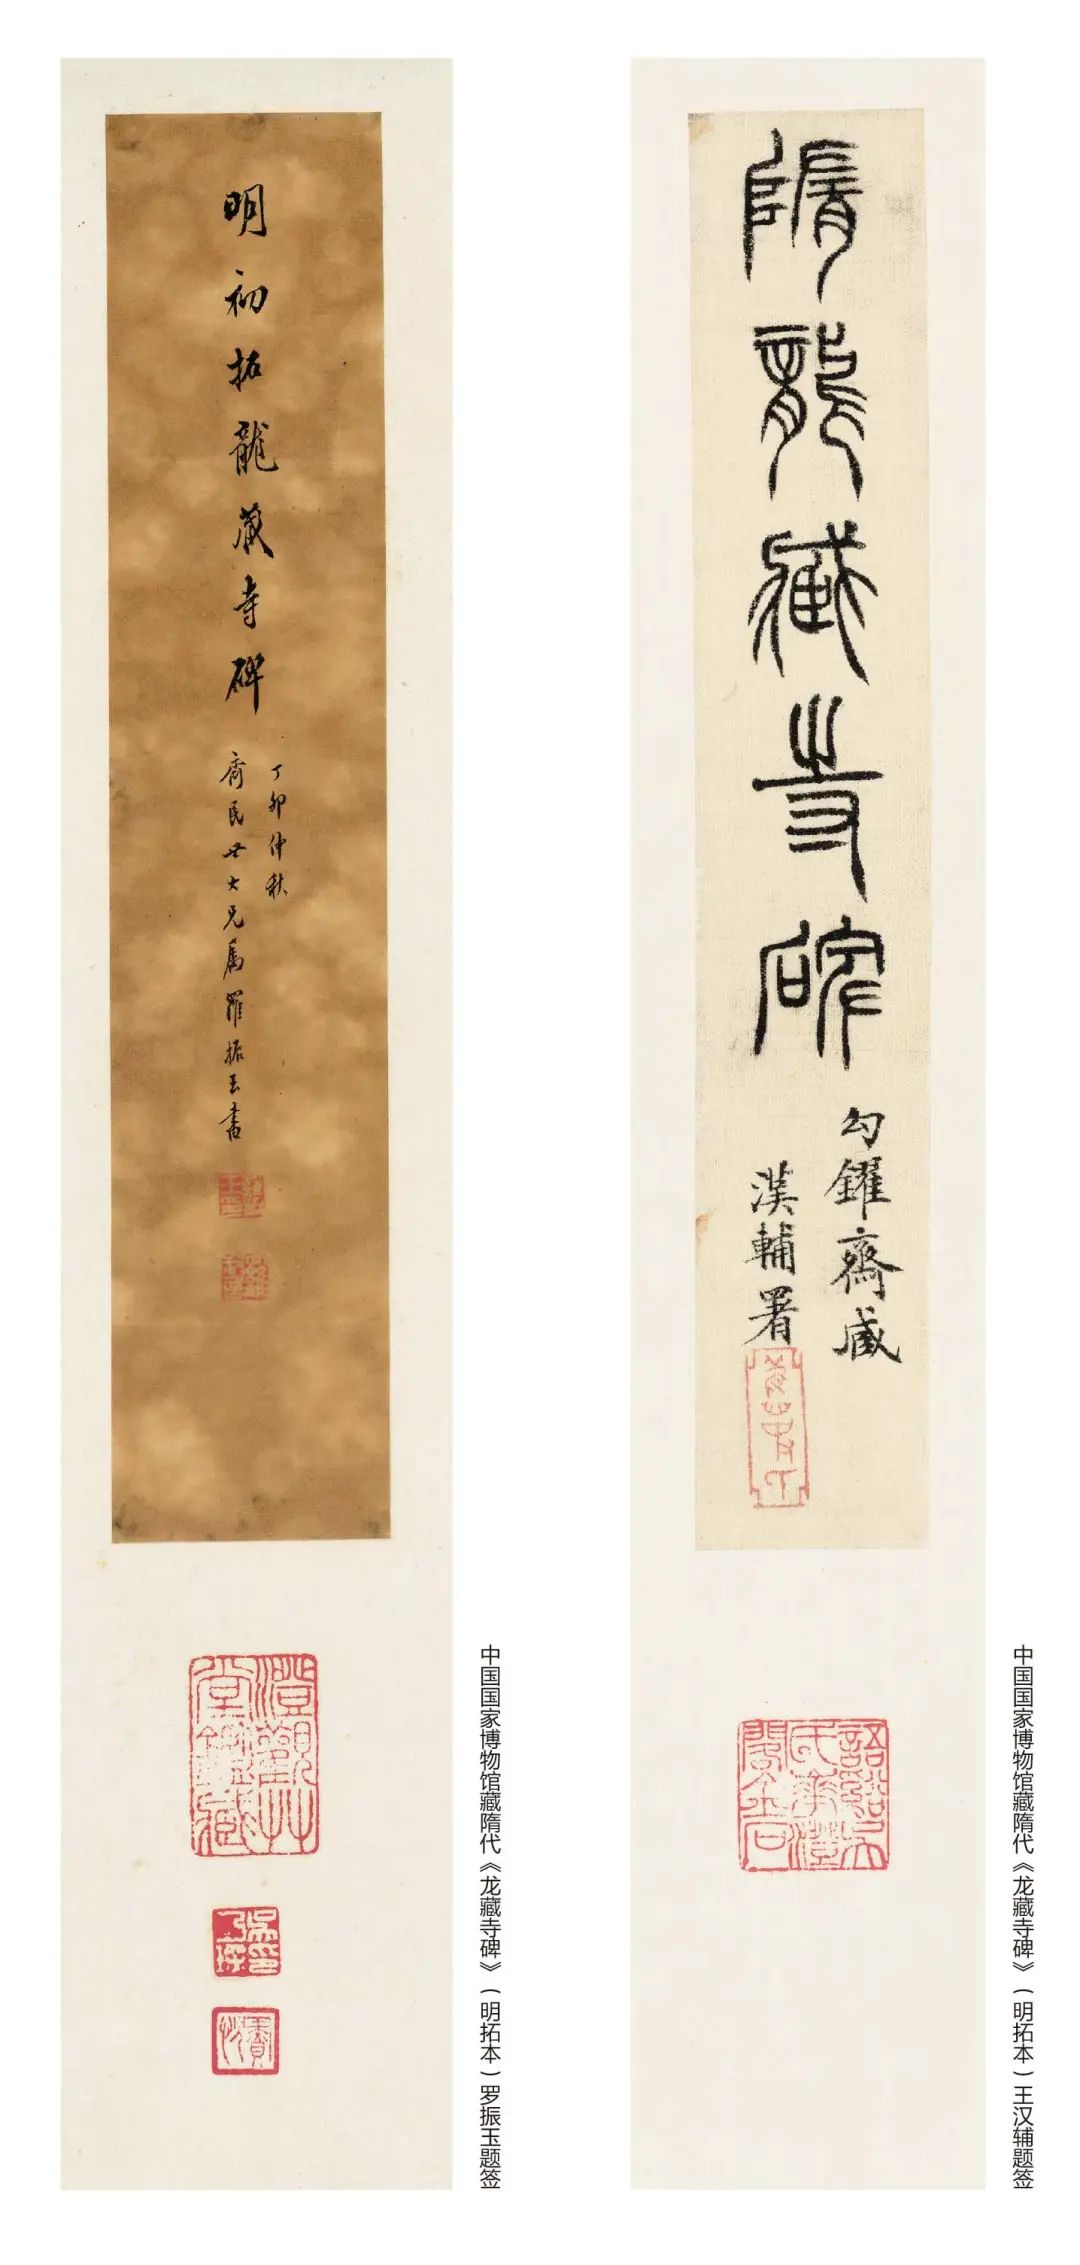 隋龍藏寺碑
勾鑃齋藏
漢輔署
中国国家博物馆藏隋代《龙藏寺碑》（明拓本）王汉辅题签
明初拓龍藏寺碑
丁卯仲秋
齊民世大兄属羅振玉書
澄觀堂鑑藏
中国国家博物馆藏隋代《龙藏寺碑》（明拓本）罗振玉题签